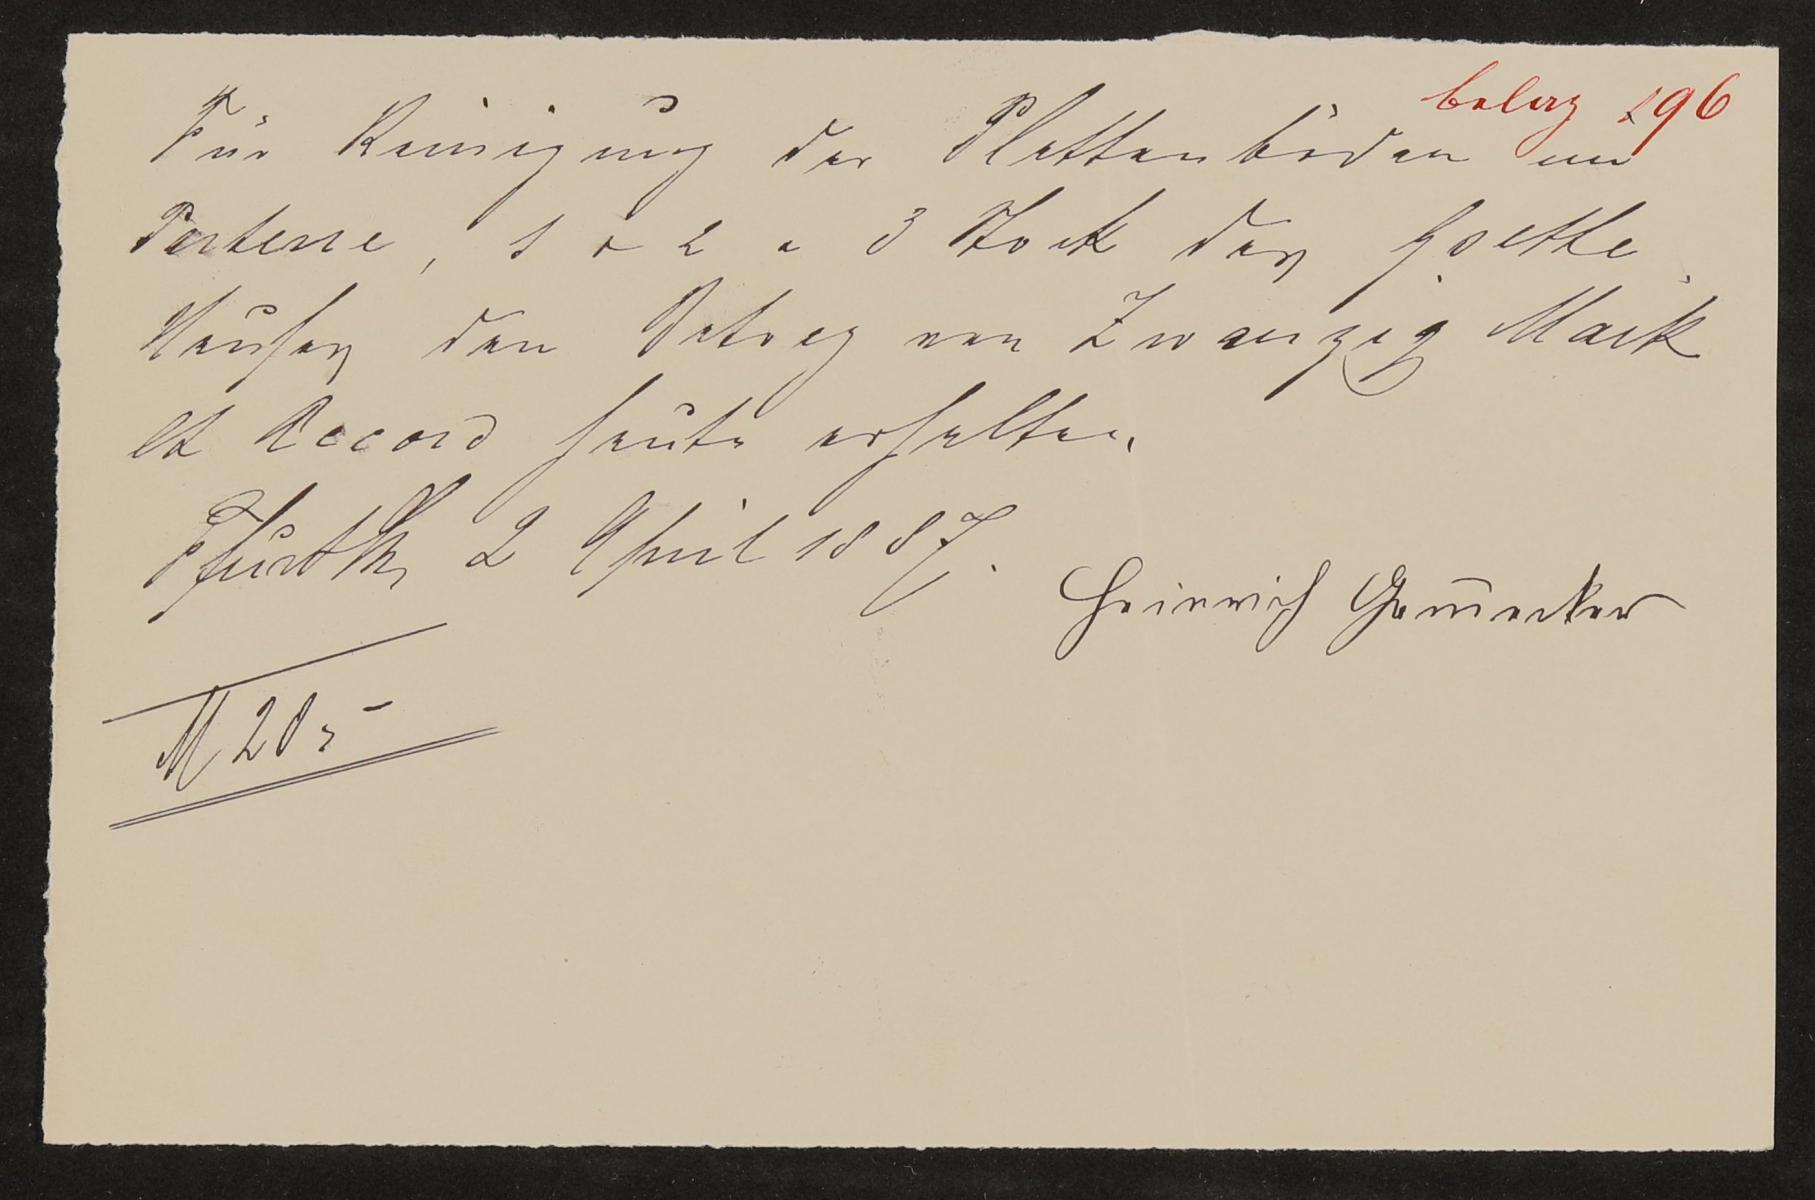 beleg 296
Für Reinigung der Plattenböden im
Parterre, 1 & 2 & 3 Stock des Goethe
Hauses den Betrag von Zwanzig Mark
lt Accord heute erhalten.
2 April 1887.
Heinrich
M 20,-